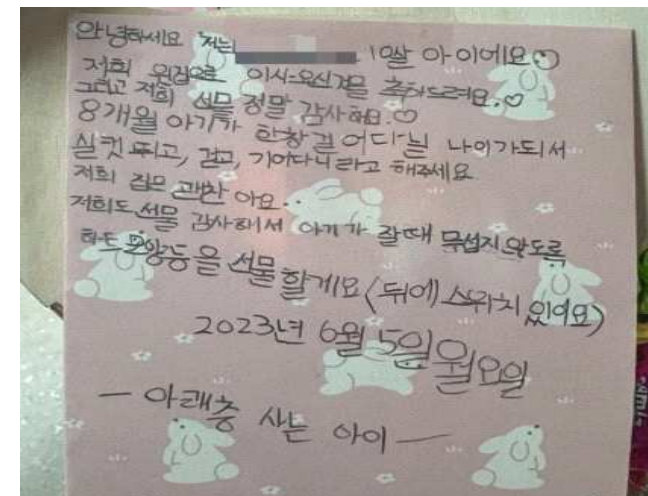 안녕하세요 저는 10살 아이에요
저희 윗집으로 이사오신거을 축하드려요.♡
그리고 저희 선물 정말 감사해요.♡
8개월 아기가 한창 걸어다닐 나이가되서
실컷 뛰고, 걷고, 기어다니라고 해주세요.
저희 집은 괜찬아요.
저희도 선물 감사해서 아기가 잘때 무섭지 않도록
하트 모양등을 선물 할게요 (뒤에 스위치 있어요)
2023년 6월 5일 월요일
— 아래층 사는 아이 —